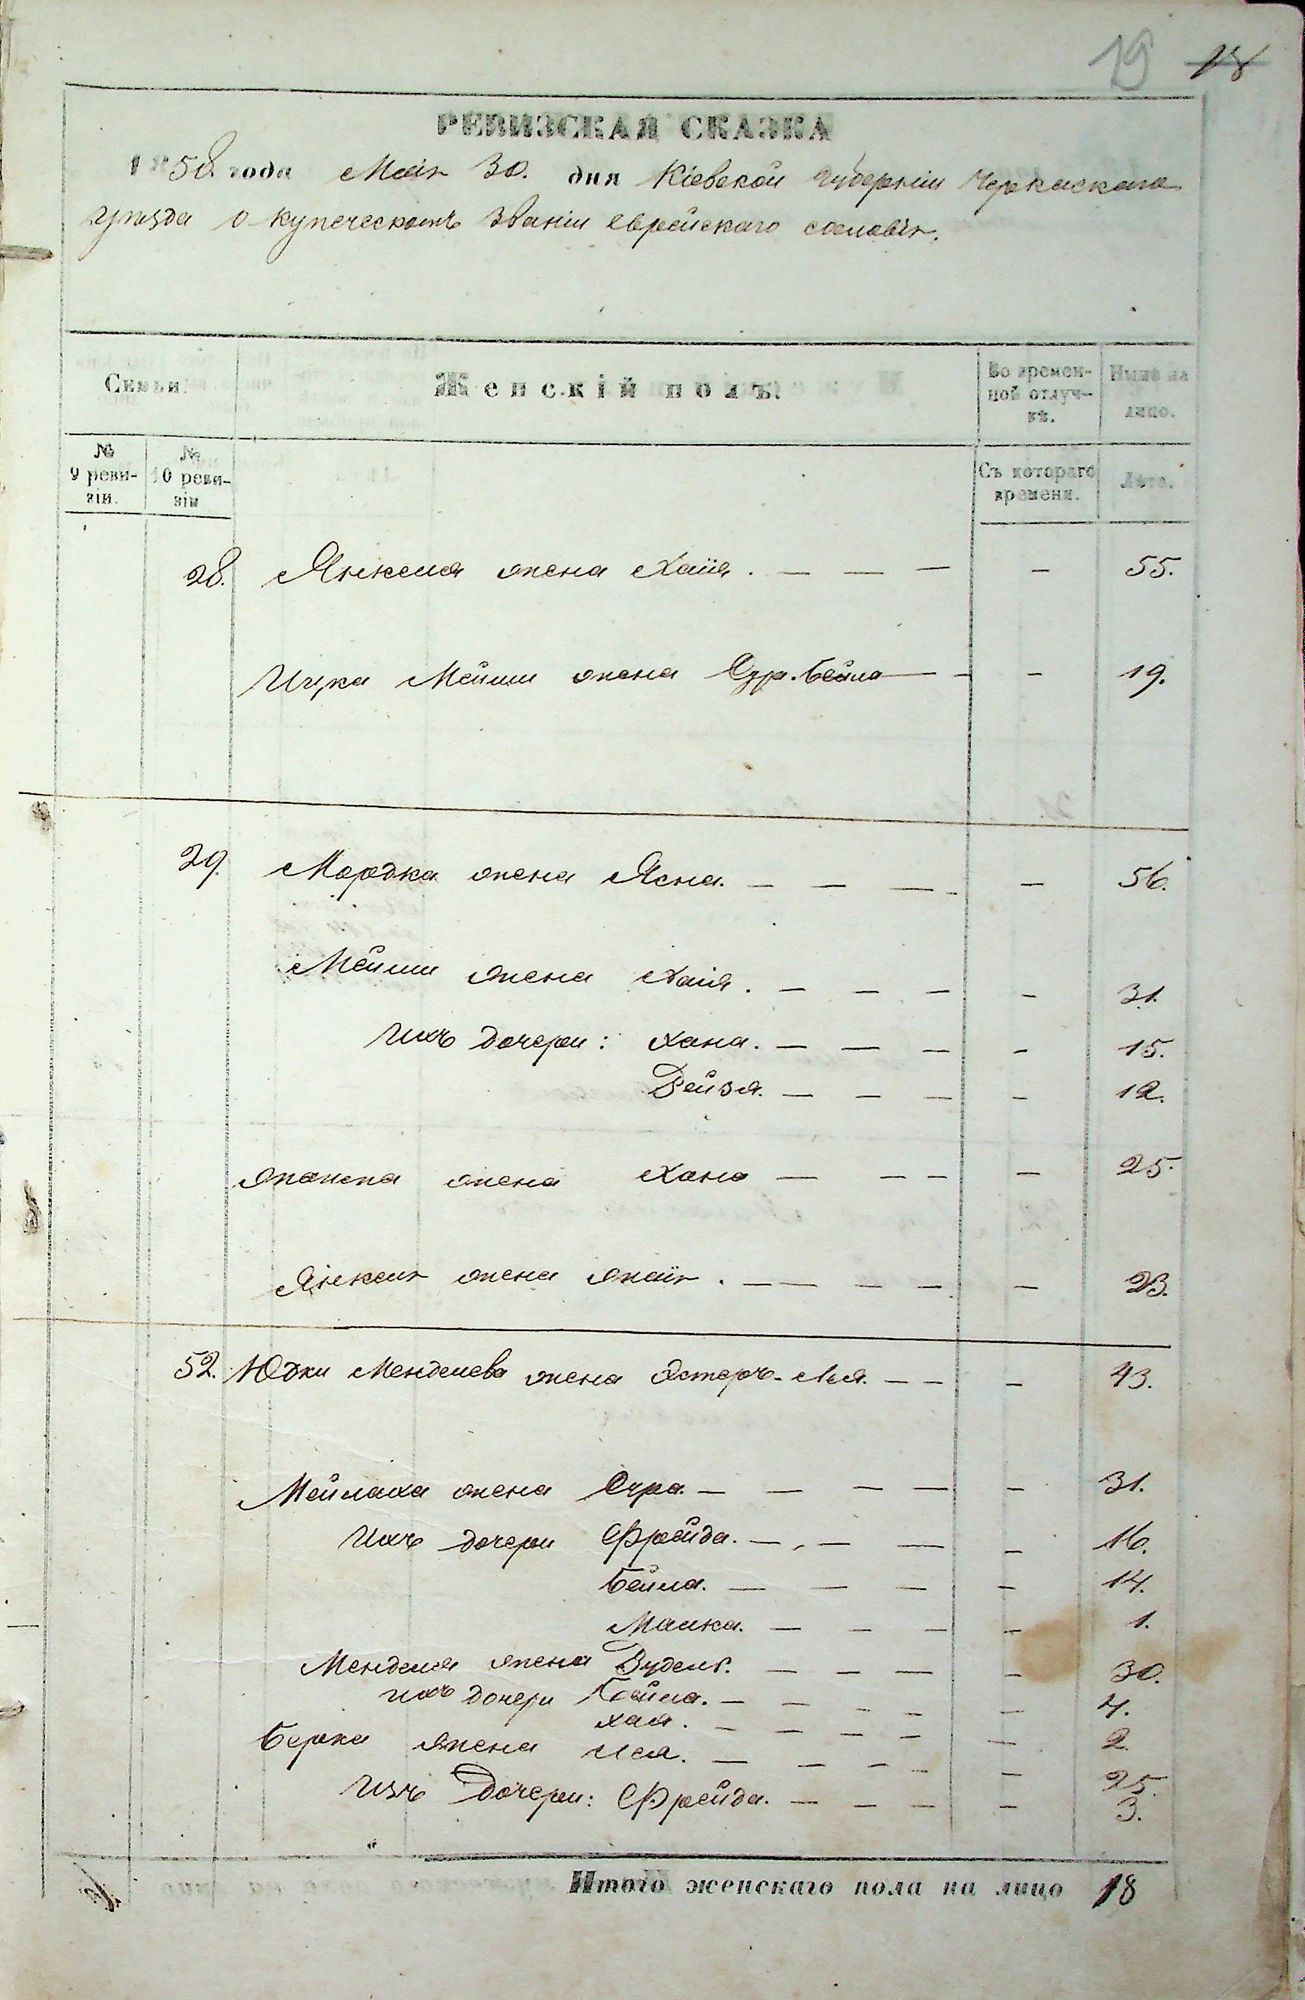 19 18
РЕВИЗСКАЯ СКАЗКА
1858 года Маія 30. дня Кіевской губерніи Черкаскаго
уѣзда о купеческомъ званіи еврейскаго сословія.
Семьи. Женскій полъ. Во времен- Нынѣ на
ной отлуч- лицо.
кѣ.
№ № Съ котораго Лѣта.
9 реви- 10 реви- времени.
зіи. зіи
28. Янкеля жена Хаія. — — — — 55.
Ицка Мейши жена Бейла — - — 19.
29. Мордка жена Ясна. — — — — 56.
Мейши жена Хаія. — — — — 31.
Ихъ дочери: Хана. — — — — 15.
Рейзя. — — — — 12.
жена Хана — — — — 25.
Янкеля жена — — — — — 23.
52. Юдки Менделева жена Эстеръ-Лея. — — — 43.
Мейлаха жена Сура. — — — — — 31.
Ихъ дочери Фрейда. — - — — — 16.
Бейла. — — — — 14.
Малка. — — — — 1.
Менделя жена — — — — 30.
ихъ дочери Бейла. — — — — — 4.
Хая. — — — — — 2
Берка жена Лея. — — — — — 25.
Ихъ дочери: Фрейда. — — — — 3.
Итого женскаго пола на лицо 18